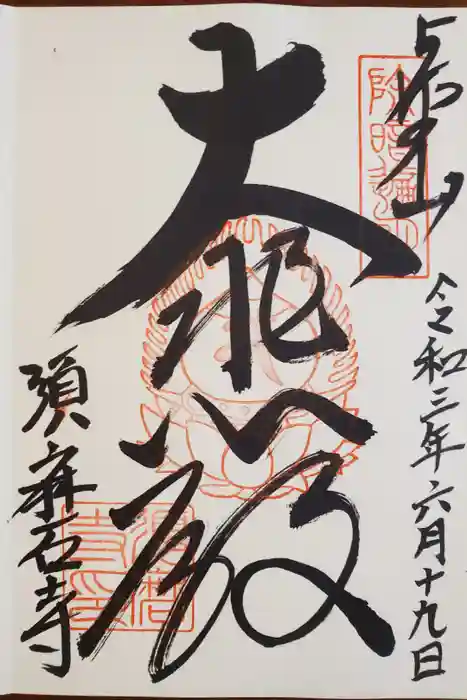 上野山
除暗遍明
令和三年六月十九日
大悲殿
須磨寺
須磨寺印